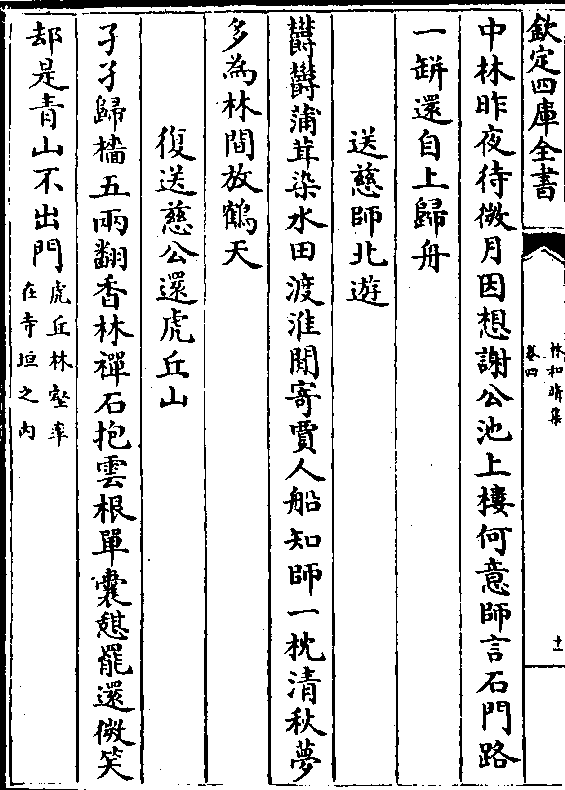 欽定四庫全書
林和靖集
卷四
十一
中林昨夜待微月因想謝公池上樓何意師言石門路
一缾還自上歸舟
送慈師北遊
鬱鬱蒲茸染水田渡淮閒寄賈人船知師一枕清秋夢
多為林間放鶴天
復送慈公還虎丘山
孑孑歸檣五兩翻香林禪石抱雲根單囊憇罷還微笑
却是青山不出門虎丘林壑率
在寺垣之内